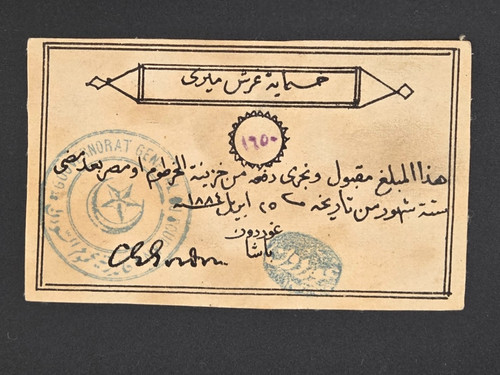 خمسماية غرش ميرى
هذا المبلغ مقبول ويجرى دفعه من خزينة الخرطوم او مصر بعد مضى
ستة شهور من تاريخه ٢٥ ابريل ١٨٨٤
غوردون
باشا
C G Gordon